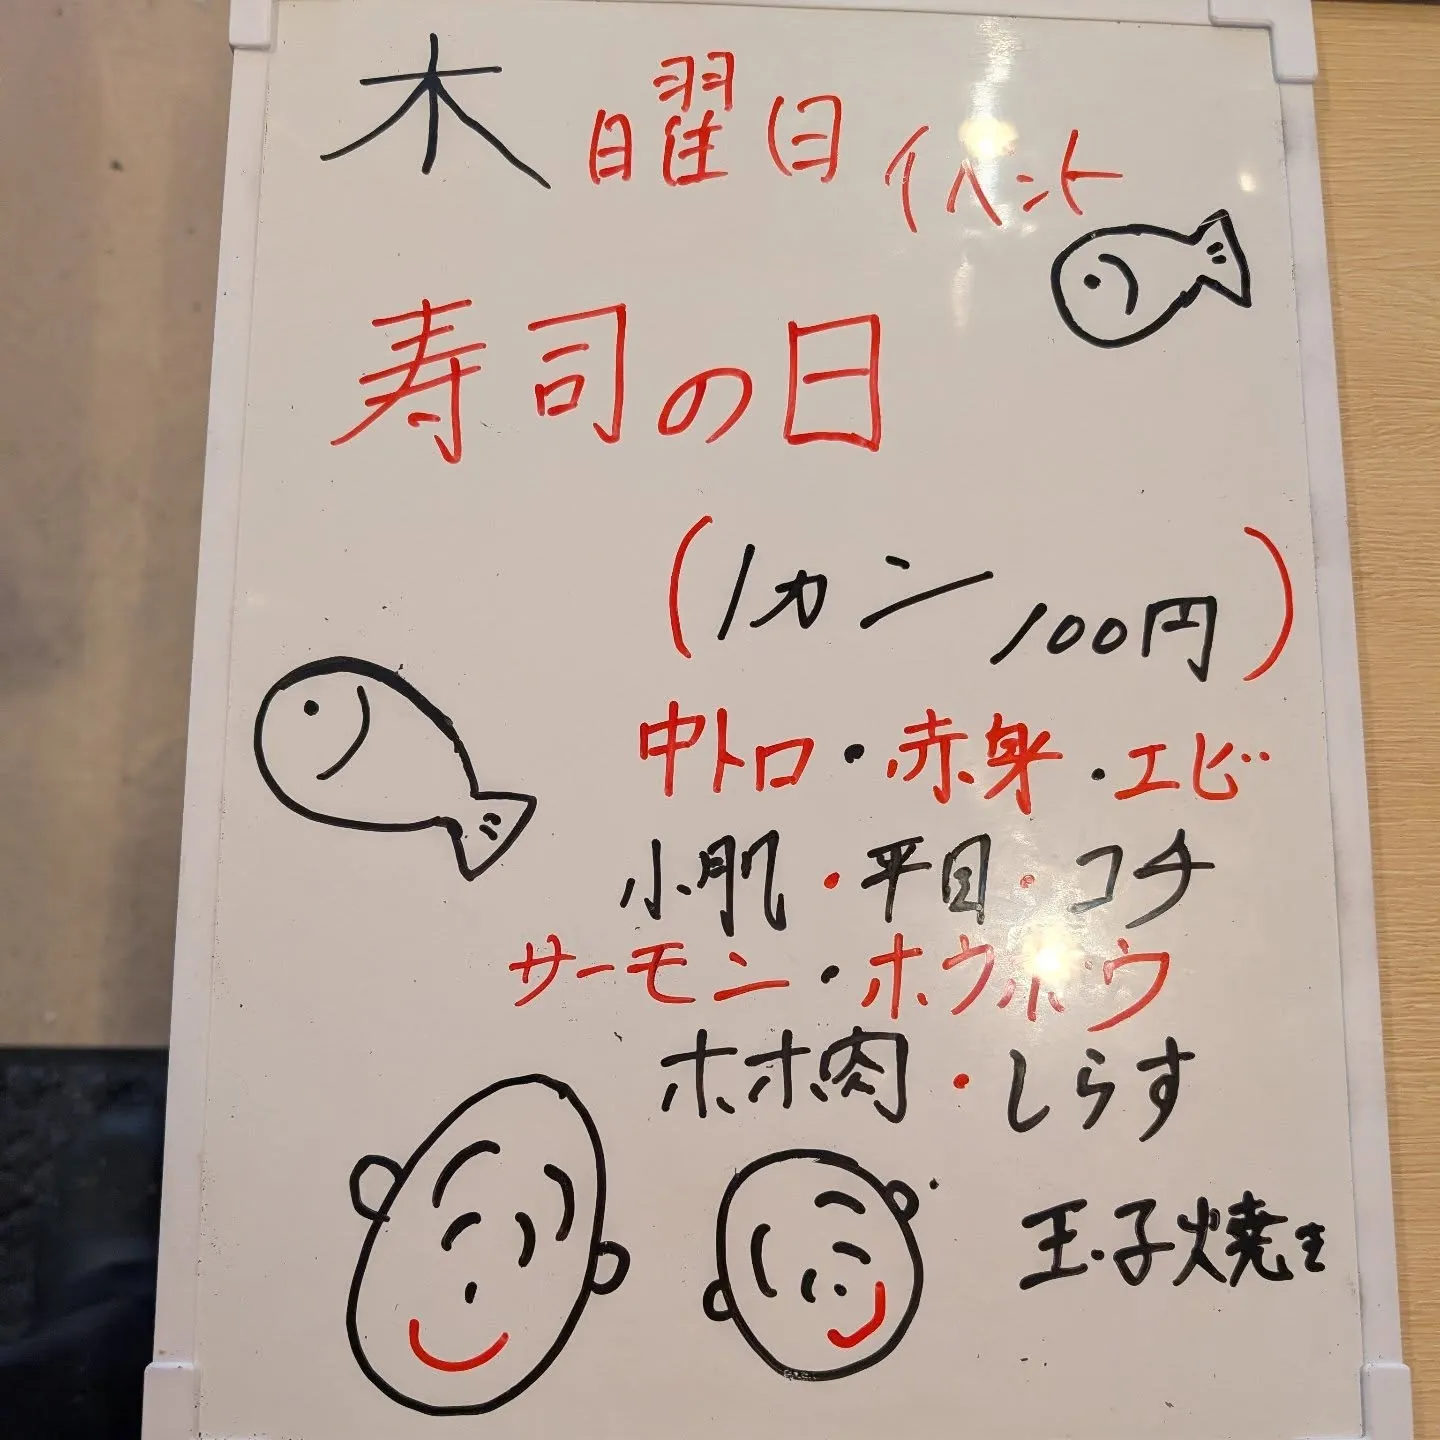 木曜日イベント
寿司の日
(1カン100円)
中トロ・赤身・エビ
小肌・平目・コチ
サーモン・ホウボウ
ホホ肉・しらす
玉子焼き